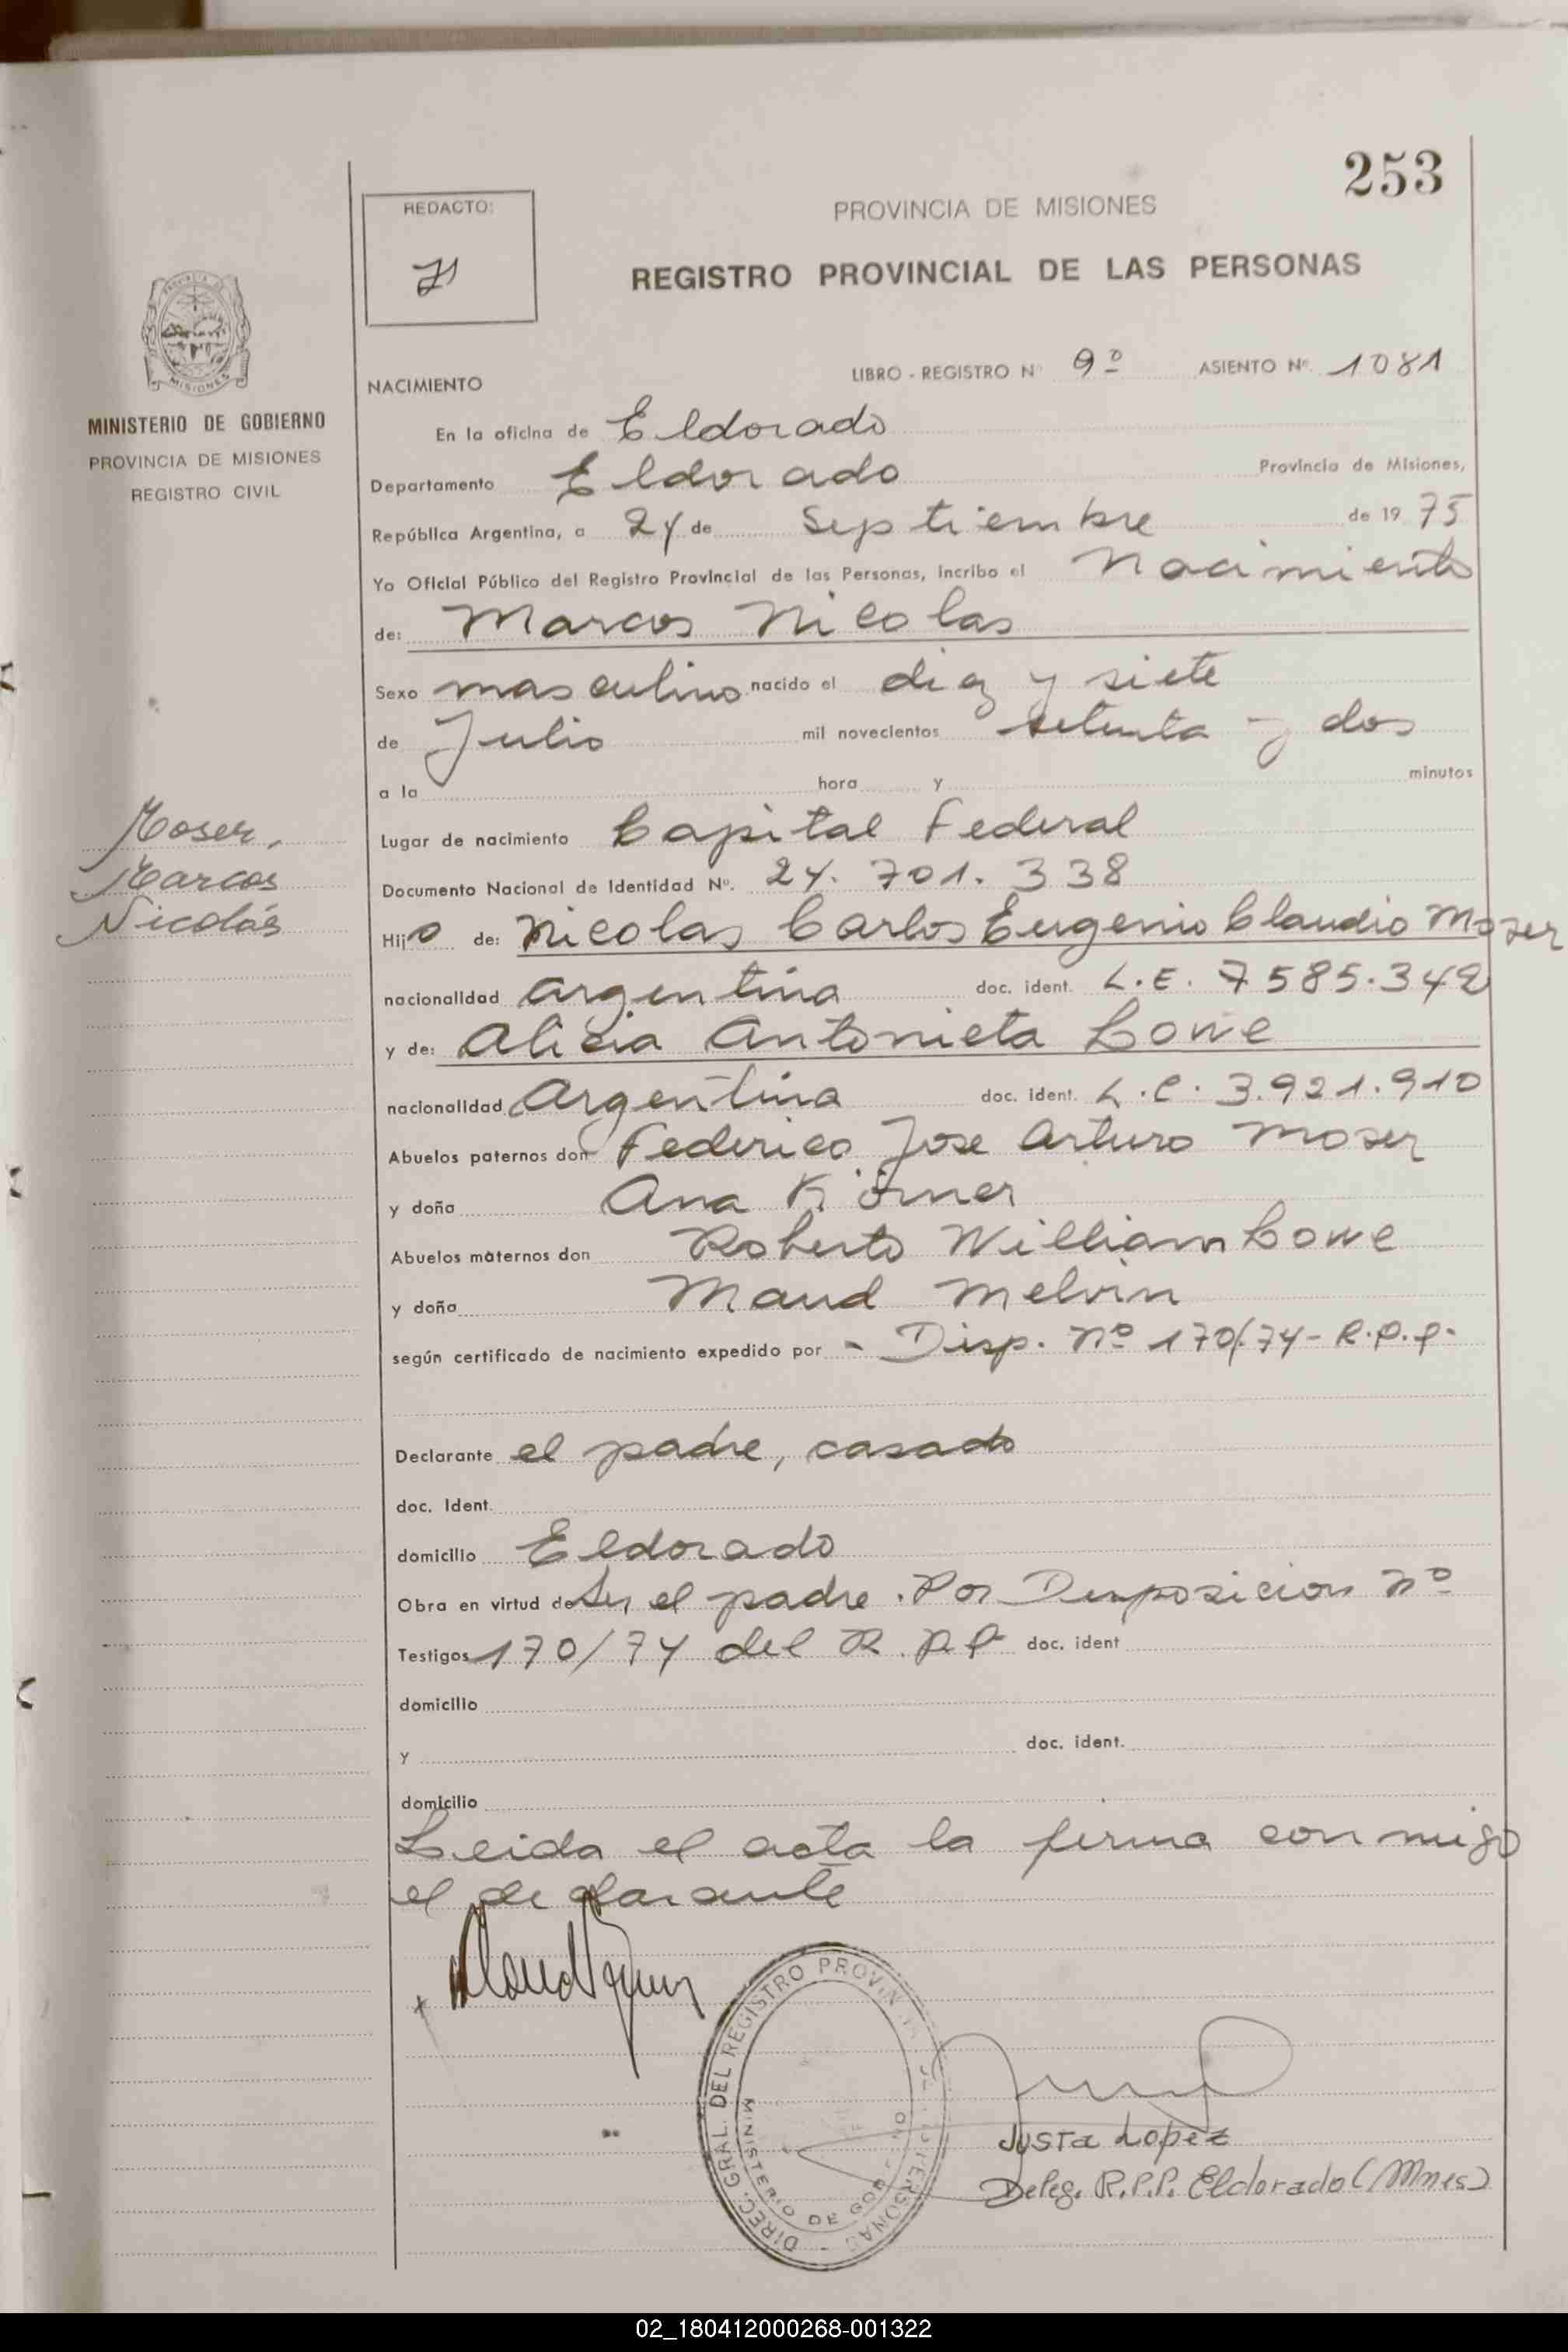 253
REDACTO:
PROVINCIA DE MISIONES
REGISTRO PROVINCIAL DE LAS PERSONAS
MISIONES
MINISTERIO DE GOBIERNO
PROVINCIA DE MISIONES
REGISTRO CIVIL
NACIMIENTO LIBRO - REGISTRO Nº 9º ASIENTO Nº. 1081
En la oficina de Eldorado
Departamento Eldorado Provincia de Misiones,
República Argentina, a 24 de Septiembre de 19 75
Yo Oficial Público del Registro Provincial de las Personas, incribo el Nacimiento
de: Marcos Nicolas
Sexo masculino nacido el diez y siete
de Julio mil novecientos setenta y dos
a la hora y minutos
Moser,
Marcos
Nicolás
Lugar de nacimiento Capital Federal
Documento Nacional de Identidad Nº. 24.701.338
Hijo de: Nicolas Carlos Eugenio Claudio Moser
nacionalidad argentina doc. ident. L.E. 7585.342
y de: Alicia Antonieta Lowe
nacionalidad argentina doc. ident. L.C. 3.921.910
Abuelos paternos don Federico Jose Arturo Moser
y doña Ana Körner
Abuelos maternos don Roberto William Lowe
y doña Maud Melvin
según certificado de nacimiento expedido por - Disp. Nº 170/74 - R.P.P.
Declarante el padre, casado
doc. Ident.
domicilio Eldorado
Obra en virtud de Ser el padre. Por Disposicion Nº
Testigos 170/74 del R.P.P doc. ident
domicilio
y doc. ident.
domicilio
Leida el acta la firma conmigo
el declarante
DIREC. GRAL. DEL REGISTRO PROVIN
MINISTERIO DE GOB
Justa Lopez
Deleg. R.P.P. Eldorado (Mnes)
02_180412000268-001322